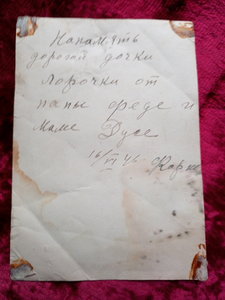 На память
дорогой дочки
Лорочки от
папы Феде и
маме Дусе
16/VI 46